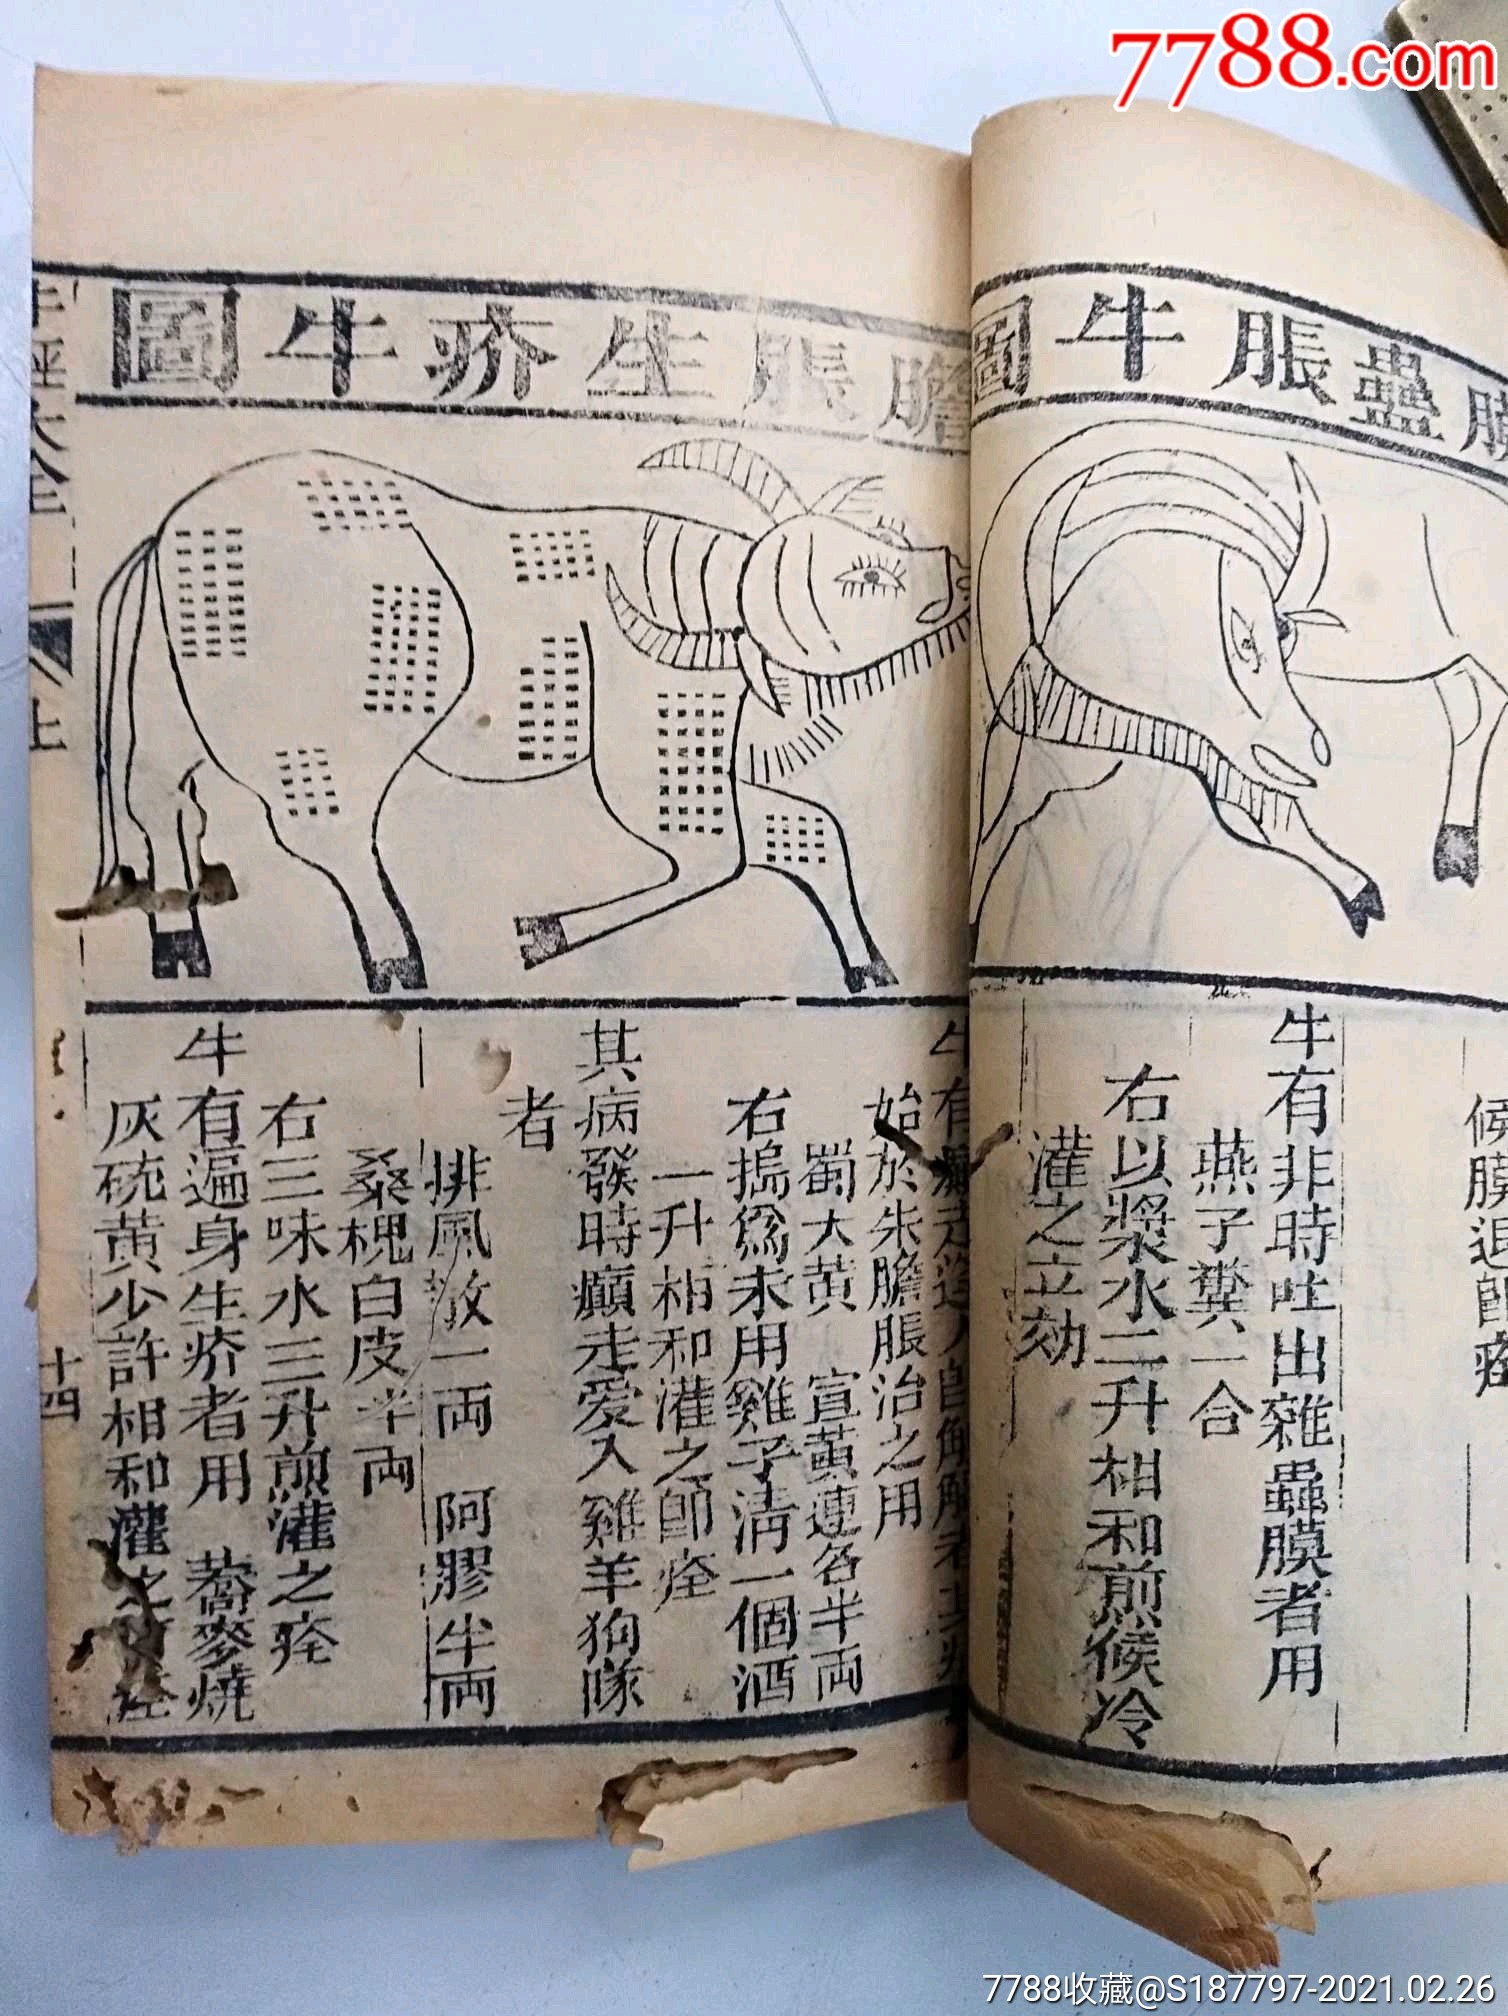 7788.com
蠱脹牛圖
候膜退即痊
牛有非時吐出雜蟲膜者用
燕子糞一合
右以漿水二升相和煎候冷
灌之立効
膽脹生疥牛圖
牛有
始於朱膽脹治之用
蜀大黄 宣黄連各半両
右搗爲末用雞子清一個酒
一升相和灌之即痊
其病發時癲走爱入雞羊狗隊
者
排風散一両 阿膠半両
桑槐白皮半両
右三味水三升煎灌之痊
牛有遍身生疥者用 蕎麥燒
灰硫黄少許相和灌之
上
十四
7788收藏@S187797-2021.02.26